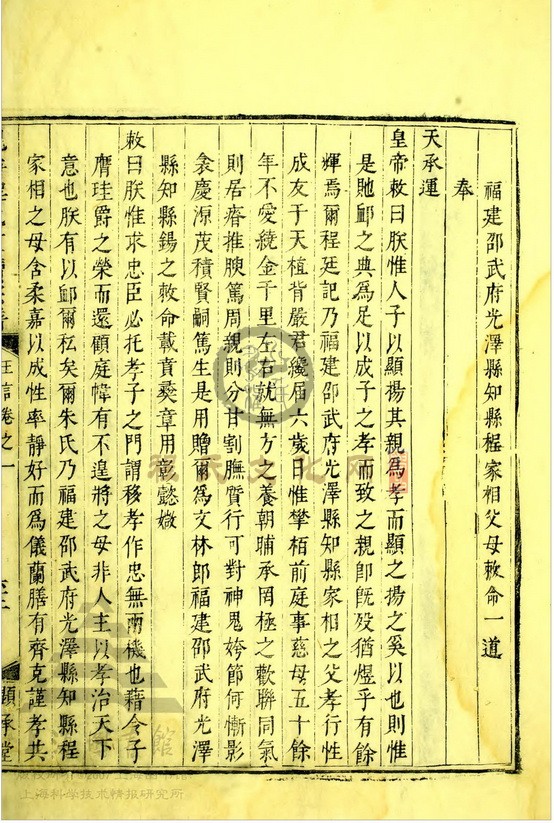 福建邵武府光澤縣知縣程家相父母敕命一道
奉
天承運
皇帝敕曰朕惟人子以顯揚其親為孝而顯之揚之奚以也則惟
是貤䘏之典為足以成子之孝而致之親即旣歿猶煜乎有餘
輝焉爾程廷記乃福建邵武府光澤縣知縣家相之父孝行性
成友于天植背嚴君纔届六歲日惟攀栢前庭事慈母五十餘
年不愛繞金千里左右就無方之養朝晡承罔極之歡聯同氣
則居瘠推腴篤周親則分甘割膴質行可對神鬼姱節何慚影
衾慶源茂積賢嗣篤生是用贈爾為文林郎福建邵武府光澤
縣知縣錫之敕命載賁褎章用彰懿媺
敕曰朕惟求忠臣必托孝子之門謂移孝作忠無兩機也藉令子
膺珪爵之榮而還顧庭幃有不遑將之母非人主以孝治天下
意也朕有以䘏爾私矣爾朱氏乃福建邵武府光澤縣知縣程
家相之母含柔嘉以成性率靜好而為儀蘭膳有齊克謹孝共
王言卷之一
顯承堂
程氏文化网
館
上海科学技术情报研究所